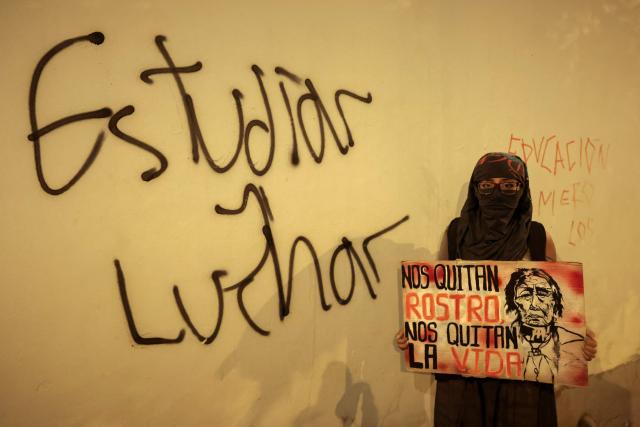 Estudiar
Luchar
EDUCACIÓN
NOS QUITAN
ROSTRO,
NOS QUITAN
LA VIDA